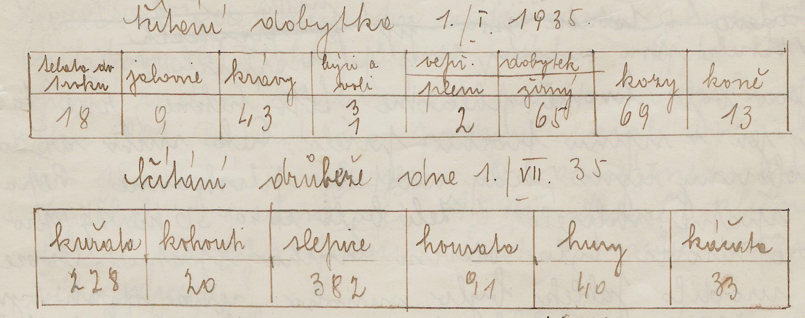 čítání dobytka 1./I. 1935.
telata do 1 roku | jalovné | krávy | býci a voli | vepř. plem | dobytek žírný | kozy | koně
18 | 9 | 43 | 3 1 | 2 | 65 | 69 | 13
čítání drůbeže dne 1./VII. 35
kuřata | kohouti | slepice | housata | husy | káčata
228 | 20 | 382 | 91 | 40 | 33